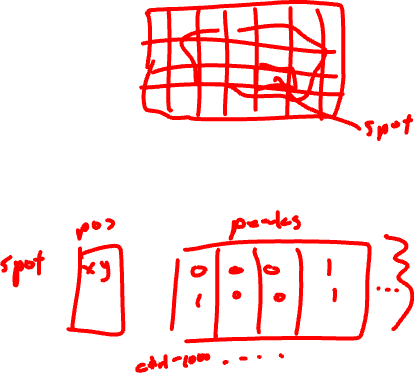 spot
pos
peaks
spot
xy
0 0 0 1
1 0 0 1
...